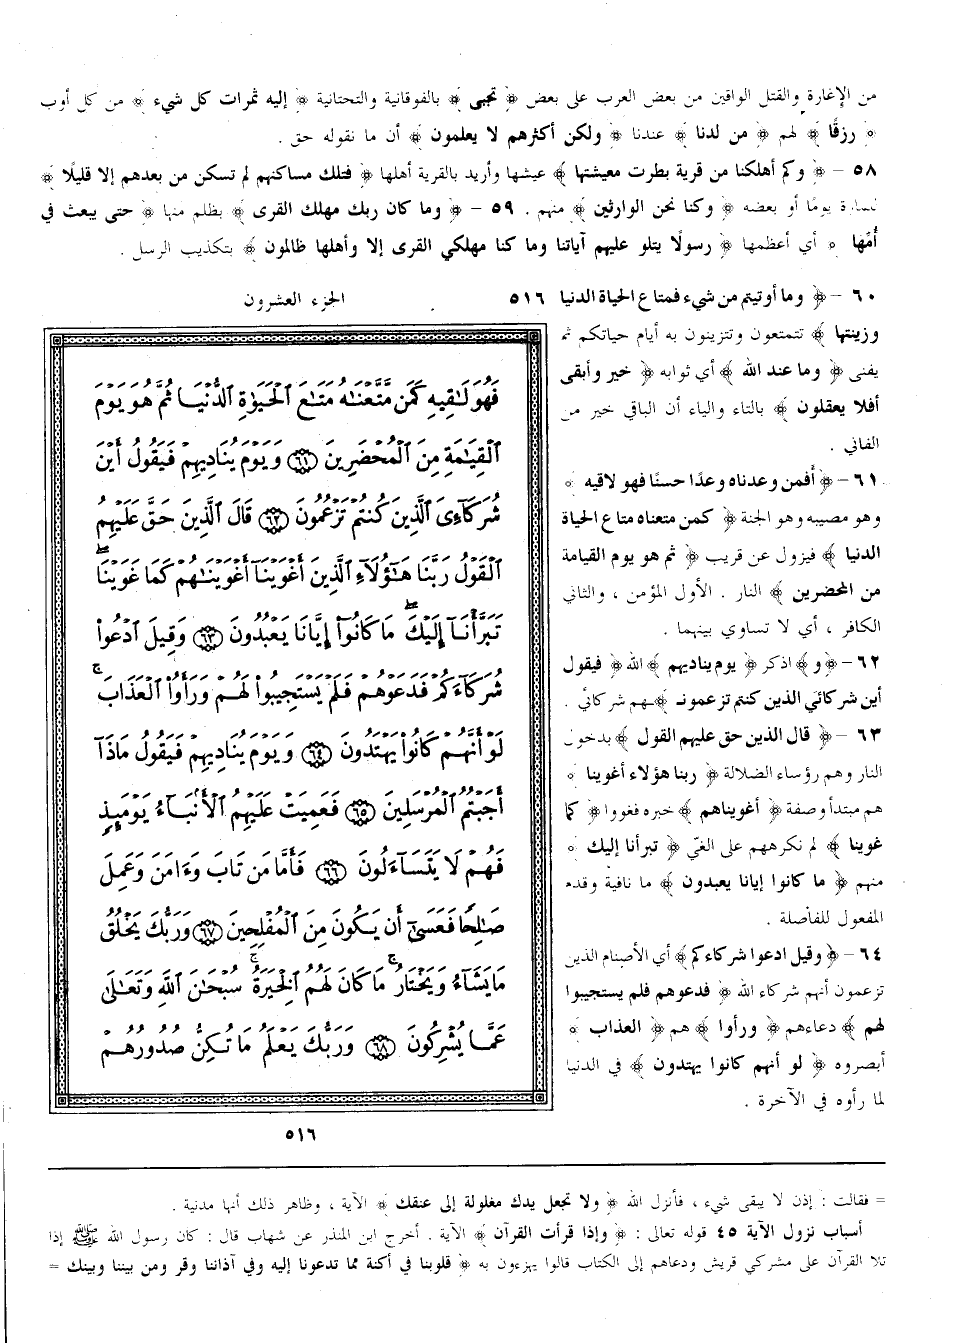 من الإغارة والقتل الواقين من بعض العرب على بعض ﴿ تجبى ﴾ بالفوقانية والتحتانية ﴿ إليه ثمرات كل شيء ﴾ من كل أوب
﴿ رزقًا ﴾ لهم ﴿ من لدنا ﴾ عندنا ﴿ ولكن أكثرهم لا يعلمون ﴾ أن ما نقوله حق .
٥٨ - ﴿ وكم أهلكنا من قرية بطرت معيشتها ﴾ عيشها وأريد بالقرية أهلها ﴿ فتلك مساكنهم لم تسكن من بعدهم إلا قليلًا ﴾
للمارة يومًا أو بعضه ﴿ وكنا نحن الوارثين ﴾ منهم . ٥٩ - ﴿ وما كان ربك مهلك القرى ﴾ بظلم منها ﴿ حتى يبعث في
أُمِّها ﴾ أي أعظمها ﴿ رسولًا يتلو عليهم آياتنا وما كنا مهلكي القرى إلا وأهلها ظالمون ﴾ بتكذيب الرسل .
الجزء العشرون
٥١٦
٦٠ - ﴿ وما أوتيتم من شيء فمتاع الحياة الدنيا
وزينتها ﴾ تتمتعون وتتزينون به أيام حياتكم ثم
يفنى ﴿ وما عند الله ﴾ أي ثوابه ﴿ خير وأبقى
أفلا يعقلون ﴾ بالتاء والياء أن الباقي خير من
الفاني .
٦١ - ﴿ أفمن وعدناه وعدًا حسنًا فهو لاقيه ﴾
وهو مصيبه وهو الجنة ﴿ كمن متعناه متاع الحياة
الدنيا ﴾ فيزول عن قريب ﴿ ثم هو يوم القيامة
من المحضرين ﴾ النار . الأول المؤمن ، والثاني
الكافر ، أي لا تساوي بينهما .
٦٢ - ﴿ و ﴾ اذكر ﴿ يوم يناديهم ﴾ الله ﴿ فيقول
أين شركائي الذين كنتم تزعمون ﴾ ـهم شركائي .
٦٣ - ﴿ قال الذين حق عليهم القول ﴾ بدخول
النار وهم رؤساء الضلالة ﴿ ربنا هؤلاء أغوينا ﴾
هم مبتدأ وصفة ﴿ أغويناهم ﴾ خبره فغووا ﴿ كما
غوينا ﴾ لم نكرههم على الغيّ ﴿ تبرأنا إليك ﴾
منهم ﴿ ما كانوا إيانا يعبدون ﴾ ما نافية وقدم
المفعول للفاصلة .
٦٤ - ﴿ وقيل ادعوا شركاءكم ﴾ أي الأصنام الذين
تزعمون أنهم شركاء الله ﴿ فدعوهم فلم يستجيبوا
لهم ﴾ دعاءهم ﴿ ورأوا ﴾ هم ﴿ العذاب ﴾
أبصروه ﴿ لو أنهم كانوا يهتدون ﴾ في الدنيا
لما رأوه في الآخرة .
فَهُوَ لَٰقِيهِ كَمَن مَّتَّعْنَٰهُ مَتَٰعَ الْحَيَوٰةِ الدُّنْيَا ثُمَّ هُوَ يَوْمَ
الْقِيَٰمَةِ مِنَ الْمُحْضَرِينَ ٦١ وَيَوْمَ يُنَادِيهِمْ فَيَقُولُ أَيْنَ
شُرَكَآءِيَ الَّذِينَ كُنتُمْ تَزْعُمُونَ ٦٢ قَالَ الَّذِينَ حَقَّ عَلَيْهِمُ
الْقَوْلُ رَبَّنَا هَٰٓؤُلَآءِ الَّذِينَ أَغْوَيْنَآ أَغْوَيْنَٰهُمْ كَمَا غَوَيْنَا ۖ
تَبَرَّأْنَآ إِلَيْكَ ۖ مَا كَانُوٓا إِيَّانَا يَعْبُدُونَ ٦٣ وَقِيلَ ادْعُوا
شُرَكَآءَكُمْ فَدَعَوْهُمْ فَلَمْ يَسْتَجِيبُوا لَهُمْ وَرَأَوُا الْعَذَابَ ۚ
لَوْ أَنَّهُمْ كَانُوا يَهْتَدُونَ ٦٤ وَيَوْمَ يُنَادِيهِمْ فَيَقُولُ مَاذَآ
أَجَبْتُمُ الْمُرْسَلِينَ ٦٥ فَعَمِيَتْ عَلَيْهِمُ الْأَنۢبَآءُ يَوْمَئِذٍ
فَهُمْ لَا يَتَسَآءَلُونَ ٦٦ فَأَمَّا مَن تَابَ وَءَامَنَ وَعَمِلَ
صَٰلِحًا فَعَسَىٰٓ أَن يَكُونَ مِنَ الْمُفْلِحِينَ ٦٧ وَرَبُّكَ يَخْلُقُ
مَا يَشَآءُ وَيَخْتَارُ ۗ مَا كَانَ لَهُمُ الْخِيَرَةُ ۚ سُبْحَٰنَ اللَّهِ وَتَعَٰلَىٰ
عَمَّا يُشْرِكُونَ ٦٨ وَرَبُّكَ يَعْلَمُ مَا تُكِنُّ صُدُورُهُمْ
٥١٦
= فقالت : إذن لا يبقى شيء ، فأنزل الله ﴿ ولا تجعل يدك مغلولة إلى عنقك ﴾ الآية ، وظاهر ذلك أنها مدنية .
أسباب نزول الآية ٤٥ قوله تعالى : ﴿ وإذا قرأت القرآن ﴾ الآية . أخرج ابن المنذر عن شهاب قال : كان رسول الله ﷺ إذا
تلا القرآن على مشركي قريش ودعاهم إلى الكتاب قالوا يهزءون به ﴿ قلوبنا في أكنة مما تدعونا إليه وفي آذاننا وقر ومن بيننا وبينك =